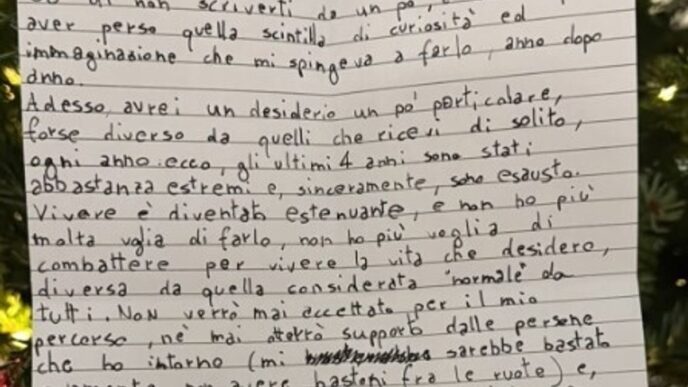 di non scriverti da un po',
aver perso quella scintilla di curiosità ed
immaginazione che mi spingeva a farlo, anno dopo
anno.
Adesso, avrei un desiderio un po' particalare,
forse diverso da quelli che ricevi di solito,
ogni anno: ecco, gli ultimi 4 anni sono stati
abbastanza estremi e, sinceramente, sono esausto.
Vivere è diventato estenuante, e non ho più
molta voglia di farlo, non ho più voglia di
combattere per vivere la vita che desidero,
diversa da quella considerata "normale" da
tutti. Non verrò mai accettato per il mio
percorso, nè mai otterrò supporto dalle persone
che ho intorno (mi sarebbe bastato
non avere bastoni fra le ruote) e,